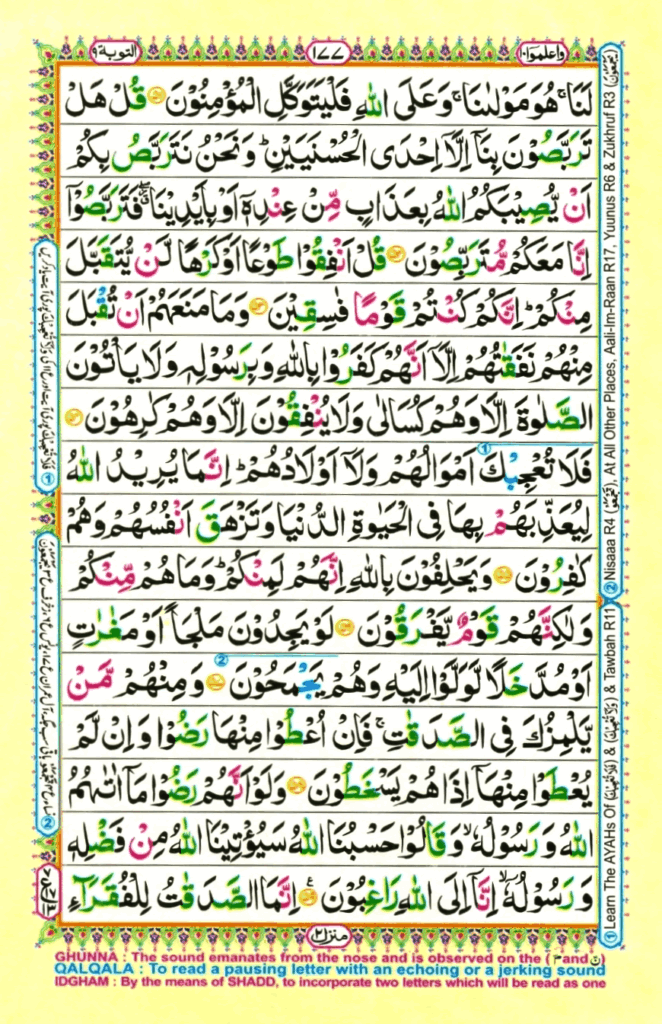 واعلموا ١٠
١٧٧
التوبة ٩
لَنَا ۚ هُوَ مَوْلٰىنَا ۚ وَعَلَى اللّٰهِ فَلْيَتَوَكَّلِ الْمُؤْمِنُوْنَ ۝ قُلْ هَلْ
تَرَبَّصُوْنَ بِنَاۤ اِلَّاۤ اِحْدَى الْحُسْنَيَيْنِ ؕ وَنَحْنُ نَتَرَبَّصُ بِكُمْ
اَنْ يُّصِيْبَكُمُ اللّٰهُ بِعَذَابٍ مِّنْ عِنْدِهٖۤ اَوْ بِاَيْدِيْنَا ۖ فَتَرَبَّصُوْۤا
اِنَّا مَعَكُمْ مُّتَرَبِّصُوْنَ ۝ قُلْ اَنْفِقُوْا طَوْعًا اَوْ كَرْهًا لَّنْ يُّتَقَبَّلَ
مِنْكُمْ ؕ اِنَّكُمْ كُنْتُمْ قَوْمًا فٰسِقِيْنَ ۝ وَمَا مَنَعَهُمْ اَنْ تُقْبَلَ
مِنْهُمْ نَفَقٰتُهُمْ اِلَّاۤ اَنَّهُمْ كَفَرُوْا بِاللّٰهِ وَبِرَسُوْلِهٖ وَلَا يَاْتُوْنَ
الصَّلٰوةَ اِلَّا وَهُمْ كُسَالٰى وَلَا يُنْفِقُوْنَ اِلَّا وَهُمْ كٰرِهُوْنَ ۝
فَلَا تُعْجِبْكَ اَمْوَالُهُمْ وَلَاۤ اَوْلَادُهُمْ ؕ اِنَّمَا يُرِيْدُ اللّٰهُ
لِيُعَذِّبَهُمْ بِهَا فِى الْحَيٰوةِ الدُّنْيَا وَتَزْهَقَ اَنْفُسُهُمْ وَهُمْ
كٰفِرُوْنَ ۝ وَيَحْلِفُوْنَ بِاللّٰهِ اِنَّهُمْ لَمِنْكُمْ ؕ وَمَا هُمْ مِّنْكُمْ
وَلٰكِنَّهُمْ قَوْمٌ يَّفْرَقُوْنَ ۝ لَوْ يَجِدُوْنَ مَلْجَاً اَوْ مَغٰرٰتٍ
اَوْ مُدَّخَلًا لَّوَلَّوْا اِلَيْهِ وَهُمْ يَجْمَحُوْنَ ۝ وَمِنْهُمْ مَّنْ
يَّلْمِزُكَ فِى الصَّدَقٰتِ ۚ فَاِنْ اُعْطُوْا مِنْهَا رَضُوْا وَاِنْ لَّمْ
يُعْطَوْا مِنْهَاۤ اِذَا هُمْ يَسْخَطُوْنَ ۝ وَلَوْ اَنَّهُمْ رَضُوْا مَاۤ اٰتٰىهُمُ
اللّٰهُ وَرَسُوْلُهٗ ۙ وَقَالُوْا حَسْبُنَا اللّٰهُ سَيُؤْتِيْنَا اللّٰهُ مِنْ فَضْلِهٖ
وَرَسُوْلُهٗۤ ۙ اِنَّاۤ اِلَى اللّٰهِ رَاغِبُوْنَ ۝ اِنَّمَا الصَّدَقٰتُ لِلْفُقَرَآءِ
منزل ٢
① Learn The AYAHs Of (فَلَا تُعْجِبْكَ) & (وَلَا تُعْجِبْكَ) & Tawbah R11
② Nisaaa R4 At All Other Places, Aali-Im-Raan R17, Yuunus R6 & Zukhruf R3 (يَجْمَحُوْنَ)
GHUNNA : The sound emanates from the nose and is observed on the (م and ن)
QALQALA : To read a pausing letter with an echoing or a jerking sound
IDGHAM : By the means of SHADD, to incorporate two letters which will be read as one